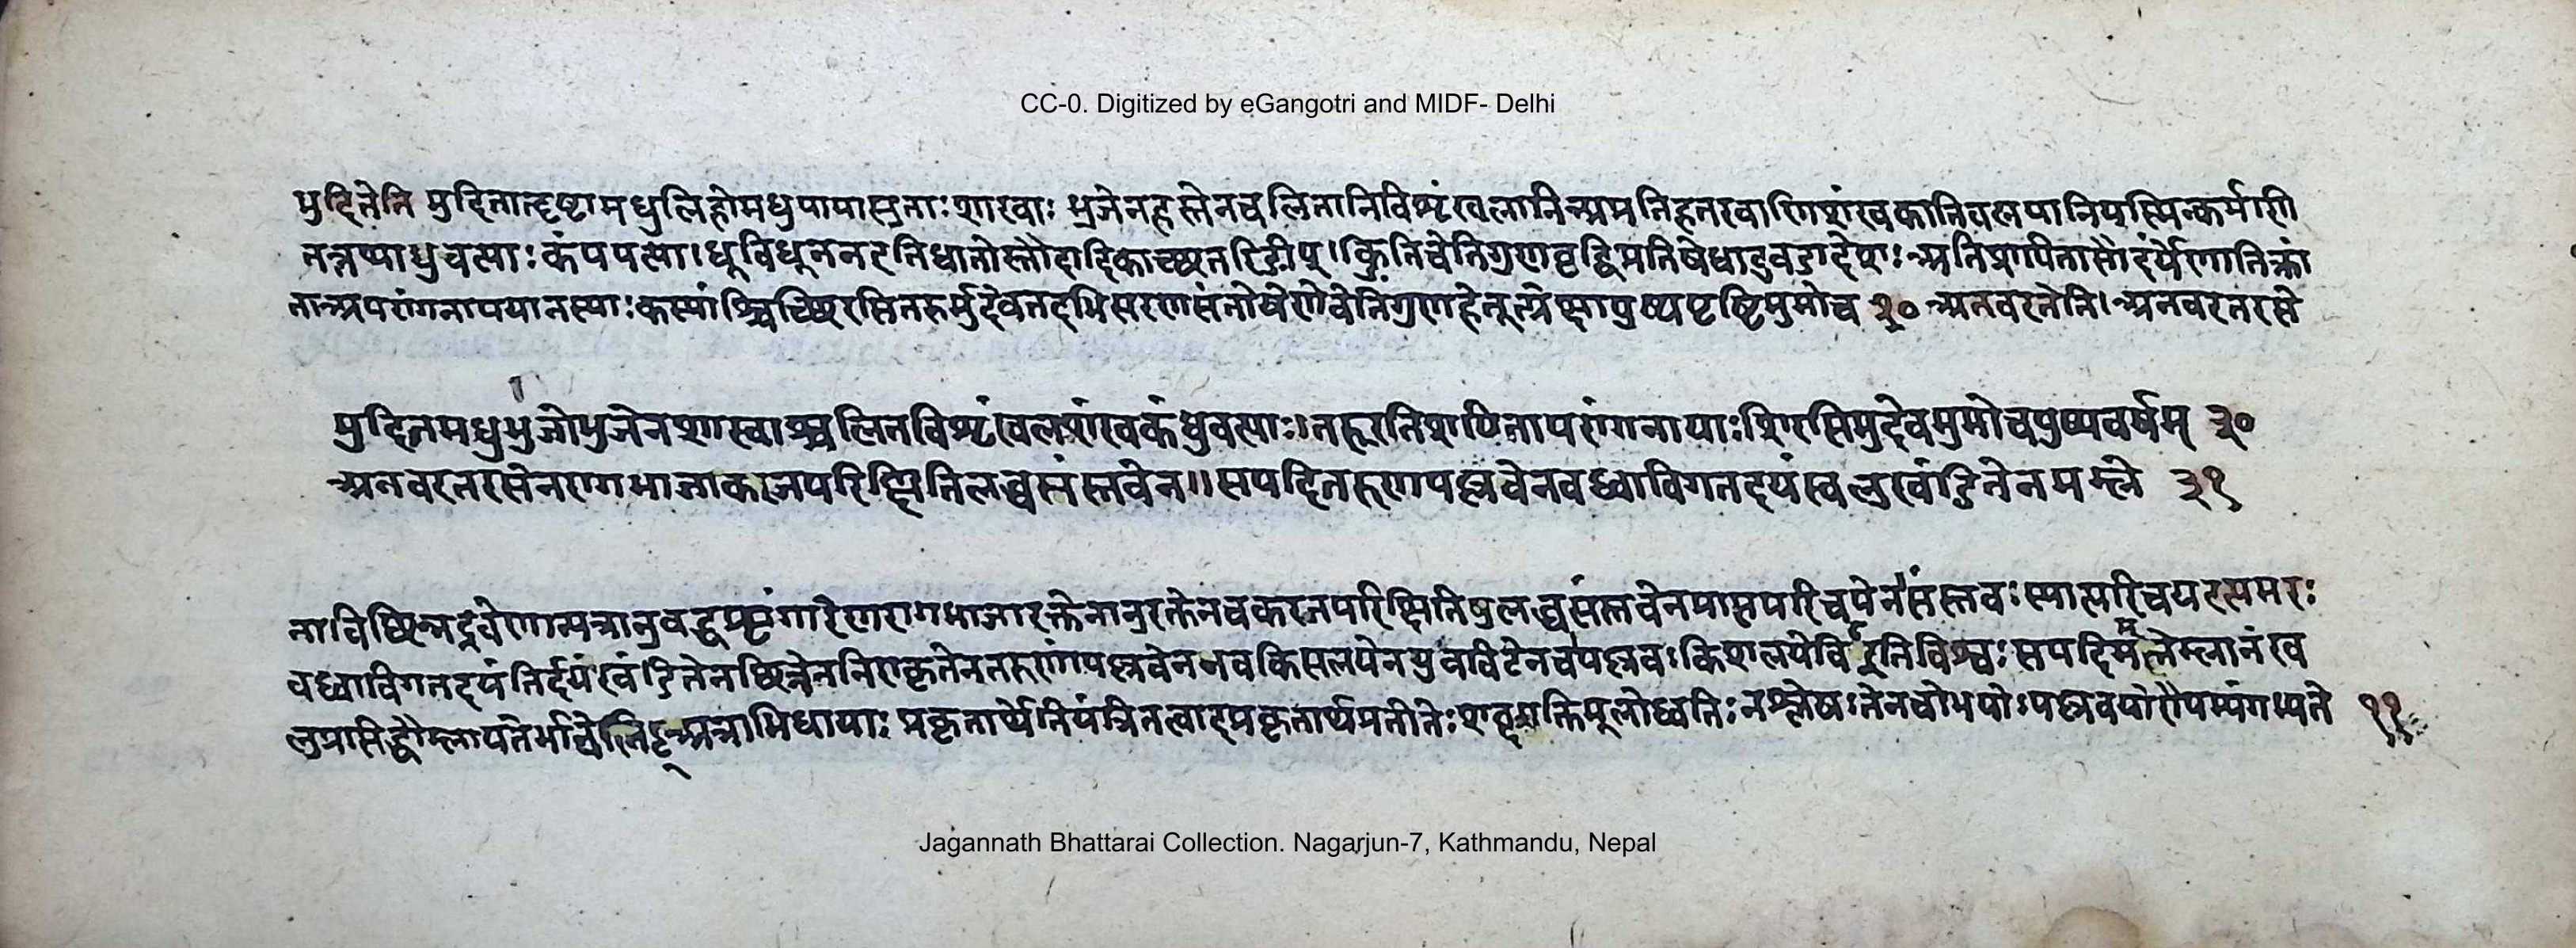 CC-0. Digitized by eGangotri and MIDF- Delhi
मुदितेति मुदितान्दृष्टामधुलिहोमधुपायासुताःशाखाः भुजेनहस्तेनचलितानिविशृंखलानिअप्रतिहतरवाणिशंखकानिवलयानियस्मिन्कर्मणि
तत्तथाधुवत्याःकंपयत्याः धूविधूननइतिधातोस्तौदादिकाच्छतरिङीप् क्ङितिचेतिगुणवृद्धिप्रतिषेधादुवङादेशःअतिशयितासौंदर्येणातिक्रां
ताअपरांगनाययातस्याःकस्याश्चिच्छिरसितरुर्मुदेवतदभिसरणसंतोषेणेवेतिगुणहेतूत्प्रेक्षापुष्पवृष्टिंमुमोच ३० अनवरतेति।अनवरतरसे
मुदितमधुभुजोभुजेनशाखाश्चलितविशृंखलशंखकंधुवत्याः।तरुरतिशयितापरांगनायाःशिरसिमुदेवमुमोचपुष्पवर्षम् ३०
अनवरतरसेनरागभाजाकरजपरिक्षितिलब्धसंस्तवेन॥सपदितरुणपल्लवेनवध्वाविगतदयंखलुखंडितेनमम्ले ३१
नाविच्छिन्नद्रवेणान्यत्रानुबद्धशृंगारेणरागभाजारक्तेनानुरक्तेनचकरजपरिक्षितिषुलब्धसंस्तवेनप्राप्तपरिचयेनसंस्तवःस्यात्परिचयइत्यमरः
वध्वाविगतदयंनिर्दयंखंडितेनछिन्नेननिराकृतेनतरुणपल्लवेननवकिसलयेनयुवविटेनचपल्लवःकिशलयेविटइतिविश्वःसपदिमम्लेम्लानंख
लुप्रासिद्धौम्लायतेर्भावेलिट्अत्राभिधायाः प्रकृतार्थेनियंत्रितत्वादप्रकृतार्थप्रतीतेःशब्दशक्तिमूलोध्वनिःनश्लेषःतेनचोभयोःपल्लवयोरौपम्यंगम्यते ११
Jagannath Bhattarai Collection. Nagarjun-7, Kathmandu, Nepal